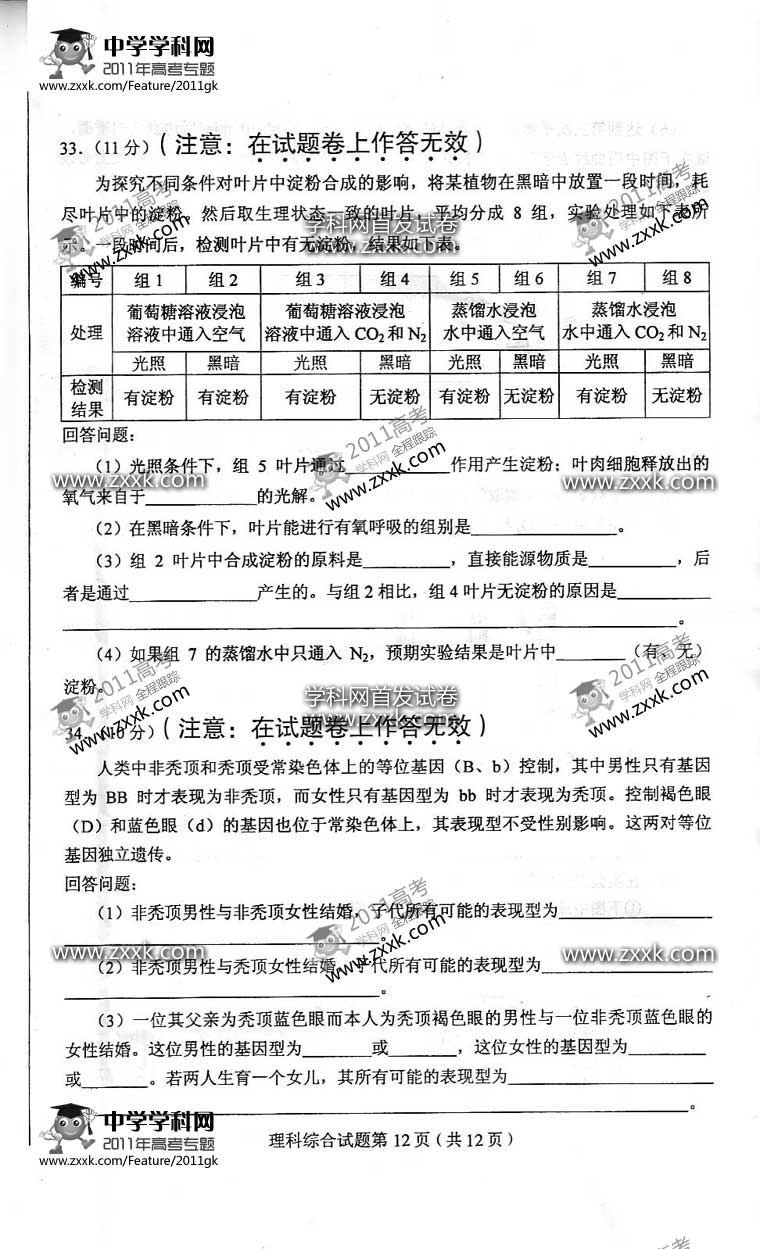 中学学科网
2011年高考专题
www.zxxk.com/Feature/2011gk
33．（11分）（注意：在试题卷上作答无效）
为探究不同条件对叶片中淀粉合成的影响，将某植物在黑暗中放置一段时间，耗
尽叶片中的淀粉。然后取生理状态一致的叶片，平均分成 8 组，实验处理如下表所
示。一段时间后，检测叶片中有无淀粉，结果如下表。
学科网首发试卷
www.zxxk.com
2011高考
学科网 全程跟踪
www.zxxk.com
2011高考
学科网 全程跟踪
www.zxxk.com
编号 组1 组2 组3 组4 组5 组6 组7 组8
处理 葡萄糖溶液浸泡 葡萄糖溶液浸泡 蒸馏水浸泡 蒸馏水浸泡
溶液中通入空气 溶液中通入 CO₂和 N₂ 水中通入空气 水中通入 CO₂和 N₂
光照 黑暗 光照 黑暗 光照 黑暗 光照 黑暗
检测结果 有淀粉 有淀粉 有淀粉 无淀粉 有淀粉 无淀粉 有淀粉 无淀粉
回答问题：
（1）光照条件下，组 5 叶片通过________作用产生淀粉；叶肉细胞释放出的
氧气来自于________的光解。
2011高考
学科网 全程跟踪
www.zxxk.com
www.zxxk.com
www.zxxk.com
（2）在黑暗条件下，叶片能进行有氧呼吸的组别是________。
（3）组 2 叶片中合成淀粉的原料是________，直接能源物质是________，后
者是通过________产生的。与组 2 相比，组 4 叶片无淀粉的原因是________
________。
（4）如果组 7 的蒸馏水中只通入 N₂，预期实验结果是叶片中________（有、无）
淀粉。
2011高考
学科网 全程跟踪
www.zxxk.com
学科网首发试卷
www.zxxk.com
2011高考
学科网 全程跟踪
www.zxxk.com
34．（10分）（注意：在试题卷上作答无效）
人类中非秃顶和秃顶受常染色体上的等位基因（B、b）控制，其中男性只有基因
型为 BB 时才表现为非秃顶，而女性只有基因型为 bb 时才表现为秃顶。控制褐色眼
（D）和蓝色眼（d）的基因也位于常染色体上，其表现型不受性别影响。这两对等位
基因独立遗传。
回答问题：
（1）非秃顶男性与非秃顶女性结婚，子代所有可能的表现型为________
________。
2011高考
学科网 全程跟踪
www.zxxk.com
www.zxxk.com
www.zxxk.com
（2）非秃顶男性与秃顶女性结婚，子代所有可能的表现型为________
________。
（3）一位其父亲为秃顶蓝色眼而本人为秃顶褐色眼的男性与一位非秃顶蓝色眼的
女性结婚。这位男性的基因型为________或________，这位女性的基因型为________
或________。若两人生育一个女儿，其所有可能的表现型为________
________。
中学学科网
2011年高考专题
www.zxxk.com/Feature/2011gk
理科综合试题第 12 页（共 12 页）